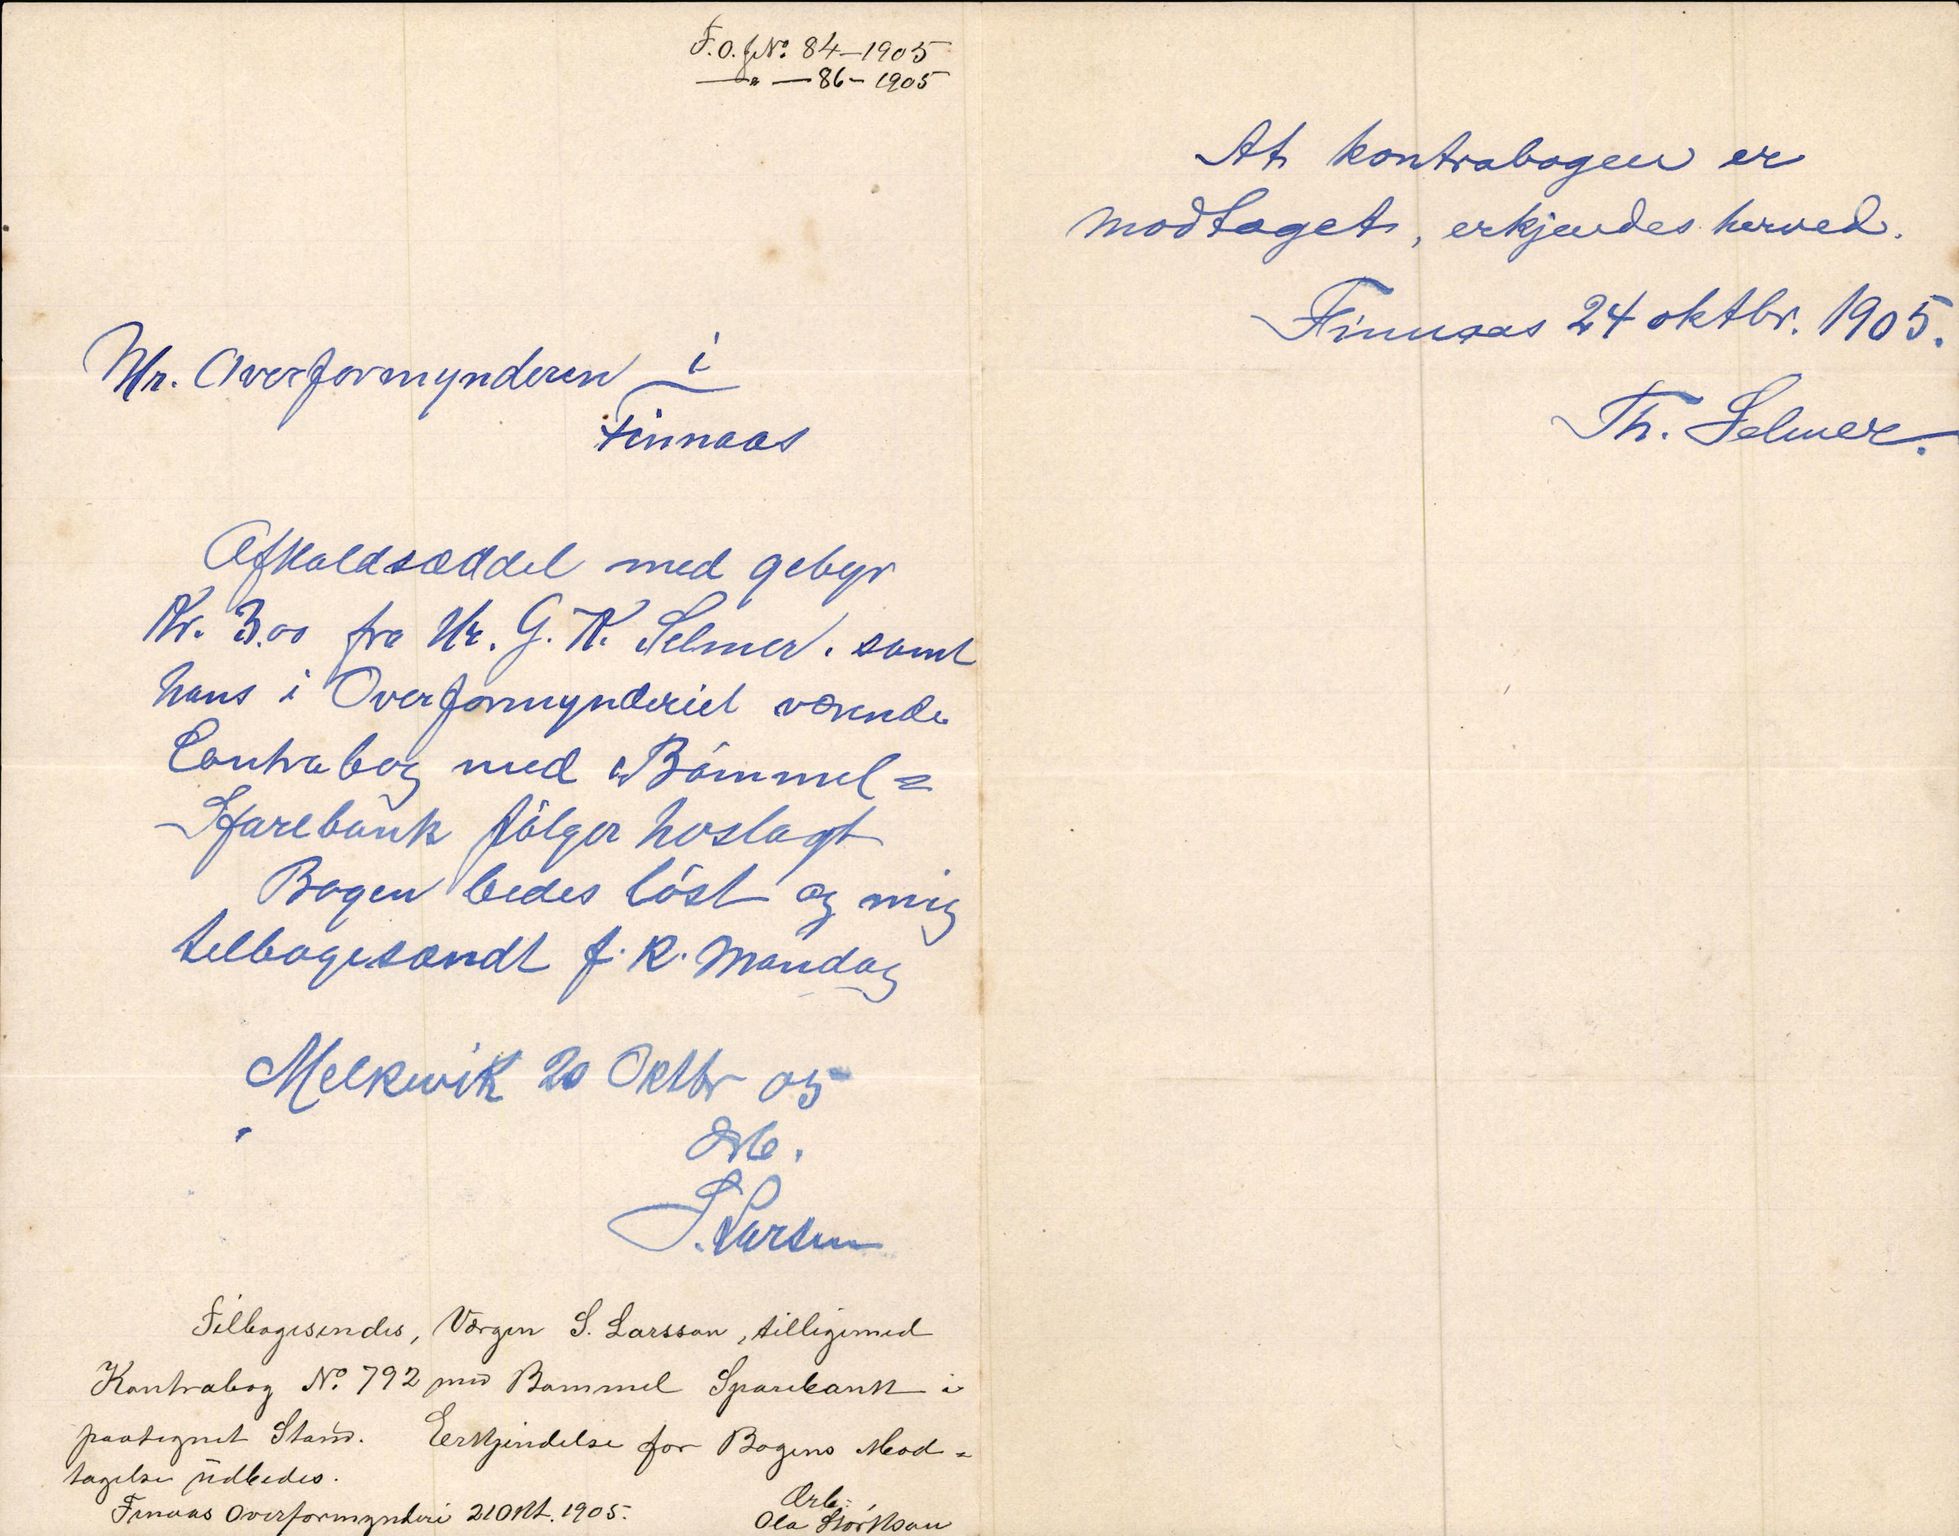 F.O. jr. No. 84-1905
— " — 86- 1905
Hr. Overformynderen i
Finnaas
Afkaldsæddel med gebyr
Kr. 3.00 fra Hr. G. K. Selmer. samt
hans i Overformynderiet værende
Contrabog med Bömmel=
Sparebank fölger hoslagt
Bogen bedes löst og mig
tilbagesændt f. k. Mandag
Melkevik 20 Oktbr 05
Ærb.
S. Larsen
Tilbagesendes, Værgen S. Larsson, tilligemed
Kontrabog No. 792 med Bommel Sparebank i
paategnet Stand. Eerkjendelse for Bogens Mod=
tagelse udbedes.
Finaas Overformynderi 21 Okt. 1905.
Ærb:
Ola
At kontrabogen er
modtaget, erkjendes herved.
Finnaas 24 oktbr. 1905.
Th. Selmer.